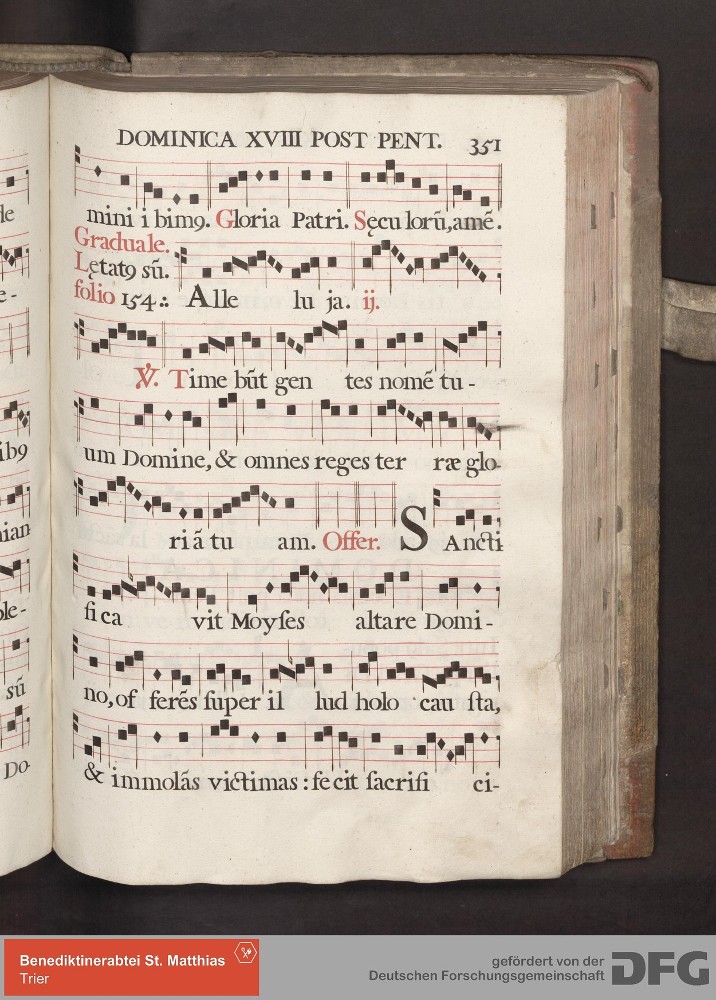 DOMINICA XVIII POST PENT. 351
mini ibim9. Gloria Patri. Sęcu lorũ, amẽ.
Graduale.
Lętat9 sũ.
folio 154.: Alle lu ja. ij.
℣. Time bũt gen tes nomẽ tu-
um Domine, & omnes reges ter ræ glo-
riã tu am. Offer. SAncti
fica vit Moyses altare Domi-
no, of ferẽs super il lud holo cau sta,
& immolãs victimas: fecit sacrifi ci-
le
e-
ib9
nian
ole-
sũ
Do-
Benediktinerabtei St. Matthias
Trier
gefördert von der
Deutschen Forschungsgemeinschaft DFG